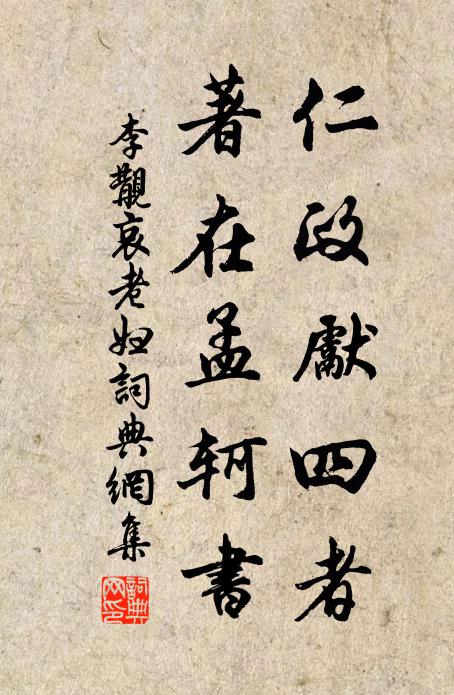 仁政獻四者
著在孟軻書
李覯哀老妇詞典網集
詞典網印